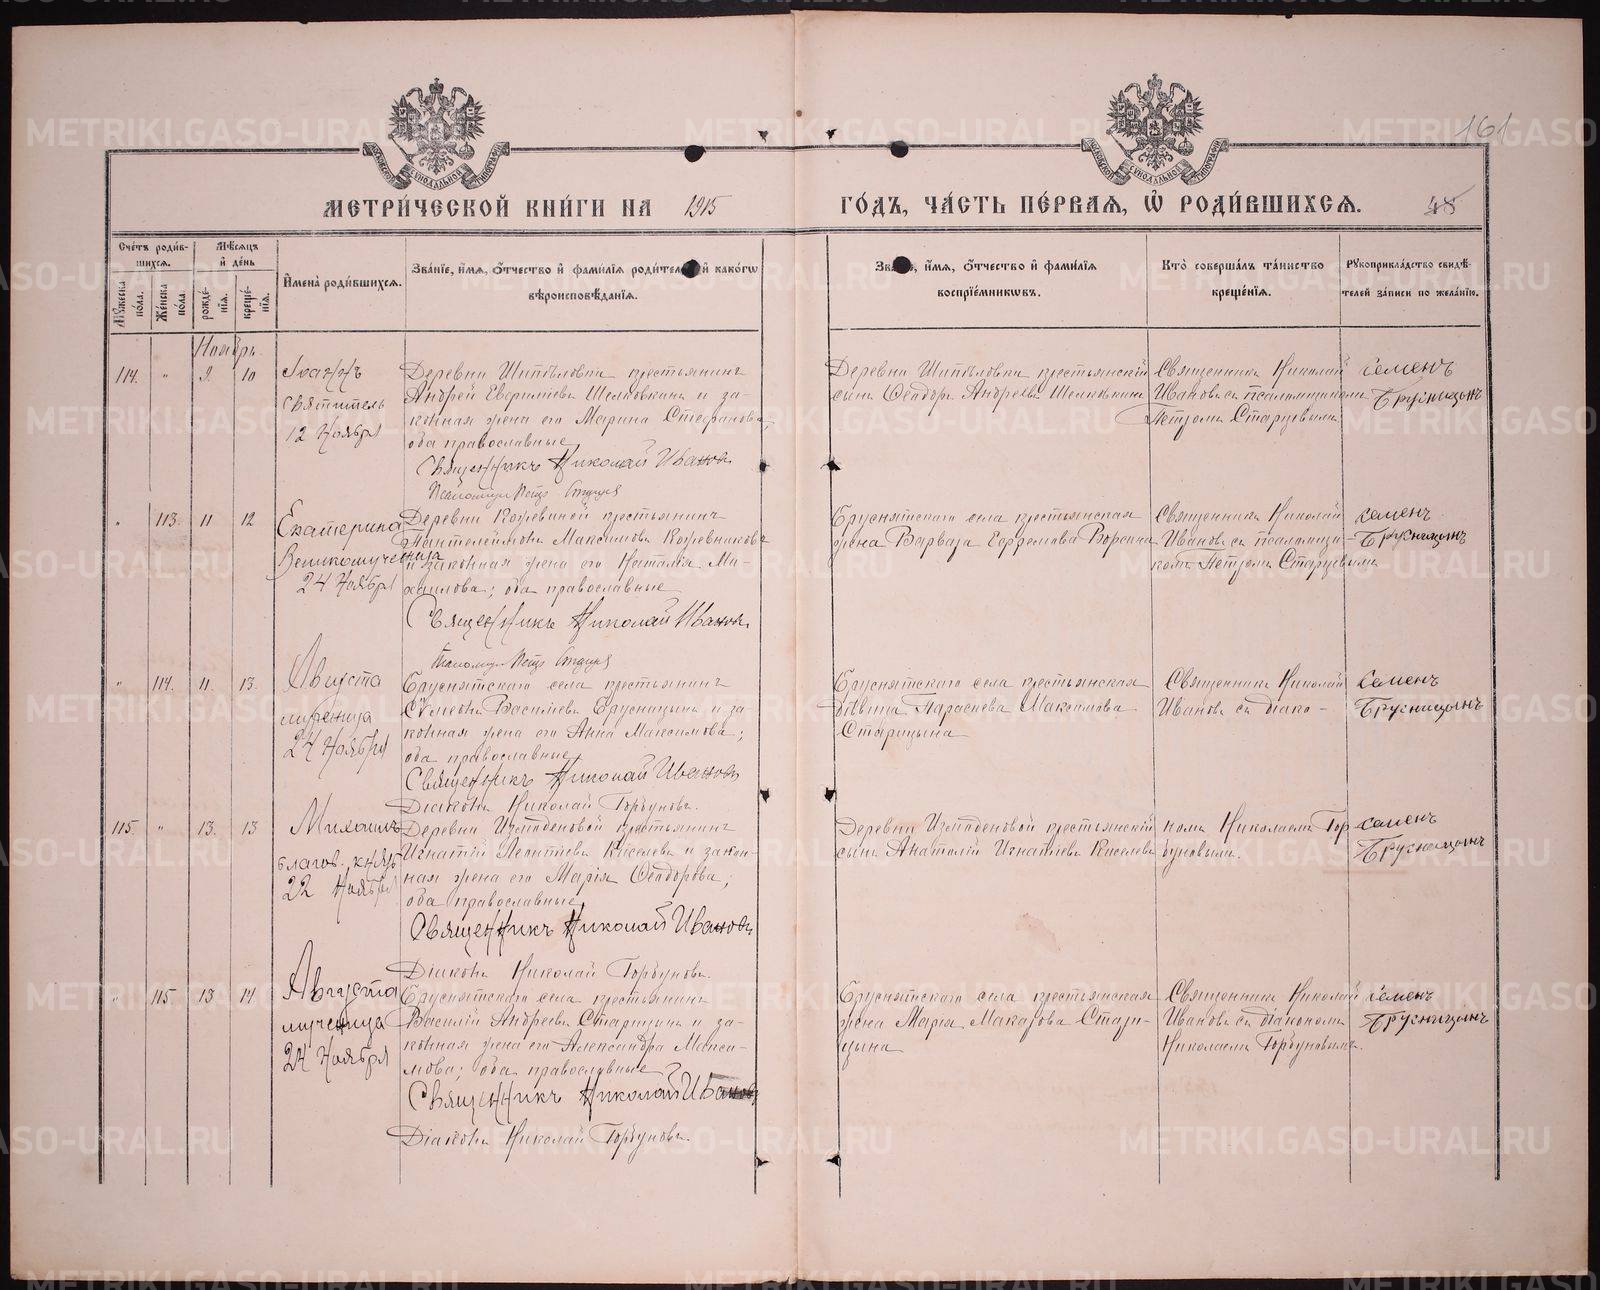 161
МЕТРИ́ЧЕСКОЙ КНИ́ГИ НА 1915 ГО́ДЪ, ЧА́СТЬ ПЕ́РВАЯ, Ѡ҆ РОДИ́ВШИХСЯ.
48
Счетъ роди́вшихся.
Мꙋ́жеска пола.
Же́нска пола
Мѣсяцъ и҆ де́нь
рожде́нїя.
креще́нїя.
И҆мена̀ роди́вшихся.
Зва́нїе, и҆́мя, о҆́тчество и҆ фами́лїя роди́телей и҆ како́гѡ
вѣроисповѣ́данїя.
Зва́нїе, и҆́мя, о҆́тчество и҆ фами́лїя
воспрїе́мникѡвъ.
Кто̀ соверша́лъ та́инство
креще́нїя.
Рꙋкоприкла́дство свидѣ́-
телей за́писи по жела́нїю.
Ноябрь
114. " 9. 10
Іоаннъ
святитель
12 Ноября
Деревни Шипѣловки крестьянинъ
Андрей
и за-
конная жена его Марина Стефанова,
оба православные
Священникъ Николай Иванов
Псаломщик Петр Старцев
Деревни Шипѣловки крестьянскій
сынъ Ѳеодоръ Андреевъ
Священникъ Николай
Ивановъ съ псаломщикомъ
Петромъ Старцевымъ
Семенъ
Брусницынъ
" 113. 11 12
Екатерина
Великомученица
24 Ноября
Деревни Кожевиной крестьянинъ
Пантелеймонъ Максимовъ Кожевниковъ
и законная жена его Наталія Ми-
хаилова; оба православные
Священникъ Николай Иванов
Псаломщик Петр Старцев
Бруснятского села крестьянская
жена Варвара Ефремова
Священникъ Николай
Ивановъ съ псаломщи-
комъ Петромъ Старцевымъ
Семенъ
Брусницынъ
" 114. 11. 13.
Августа
мученица
24 Ноября
Бруснятского села крестьянинъ
Сѵмеонъ Василіевъ Брусницынъ и за-
конная жена его Анна Максимова;
оба православные
Священникъ Николай Иванов
Діаконъ Николай Горбуновъ.
Бруснятского села крестьянская
дѣвица Параскева Максимова
Старицына
Священникъ Николай
Ивановъ съ діако-
Семенъ
Брусницынъ
115. " 13. 13
Михаилъ
благов. князь
22 Ноября
Деревни Измоденовой крестьянинъ
Игнатій Леонтіевъ Киселевъ и закон-
ная жена его Марія Ѳеодорова;
оба православные
Священникъ Николай Иванов
Діаконъ Николай Горбуновъ.
Деревни Измоденовой крестьянскій
сынъ Анатолій Игнатіевъ Киселевъ
номъ Николаемъ Гор-
буновымъ.
Семенъ
Брусницынъ
" 115. 13 14
Августа
мученица
24 Ноября
Бруснятского села крестьянинъ
Василій Андреевъ Старицынъ и за-
конная жена его Александра Макси-
мова; оба православные
Священникъ Николай Иванов
Діаконъ Николай Горбуновъ.
Бруснятского села крестьянская
жена Марія Макарова Стари-
цына
Священникъ Николай
Ивановъ съ діакономъ
Николаемъ Горбуновымъ.
Семенъ
Брусницынъ
METRIKI.GASO-URAL.RU